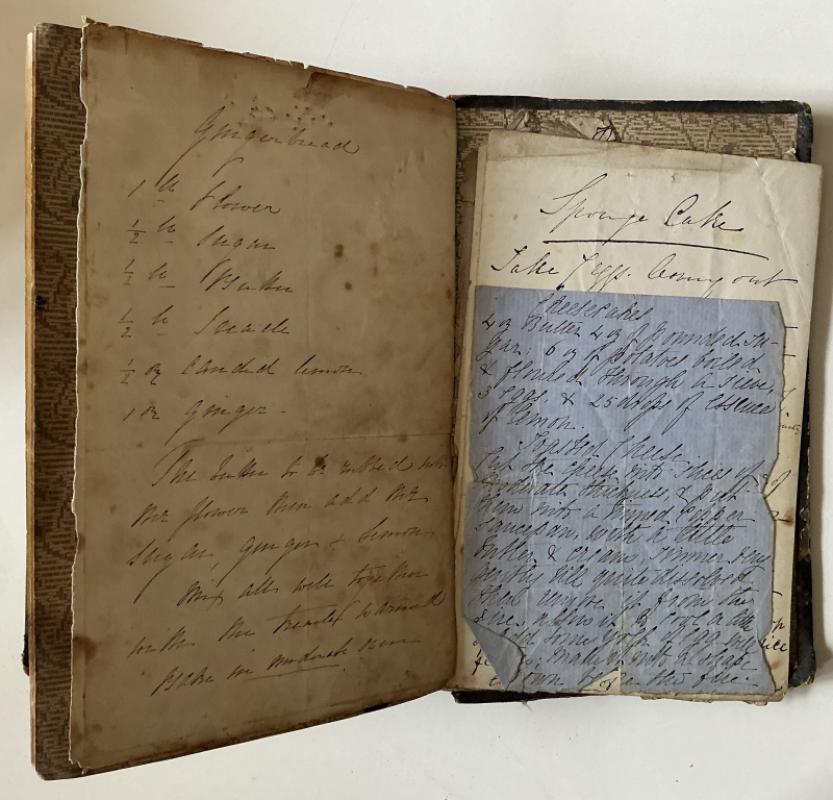 Gingerbread
1 lb flower
½ lb Sugar
½ lb Butter
½ lb Treacle
½ oz Candied lemon
1 oz Ginger -
The butter to be rubbed into
the flower then add the
Sugar, Ginger & Lemon
Mix all well together
with the treacle warmed
Bake in moderate oven
Sponge Cake
Take 7 eggs. leaving out
Cheesecakes
4 oz Butter 4 oz of pounded su-
gar, 6 oz of potatoes boiled
& through a sieve
3 eggs & 25 drops of essence
of lemon.
Cheese
Cut the cheese into slices of
moderate thickness, & put
them into a tinned copper
saucepan, with a little
butter & cream, simmer very
gently till quite dissolved
then remove it from the
fire, allow it to cool a little
add some yolk of egg well
make it into a shape
brown before the fire.